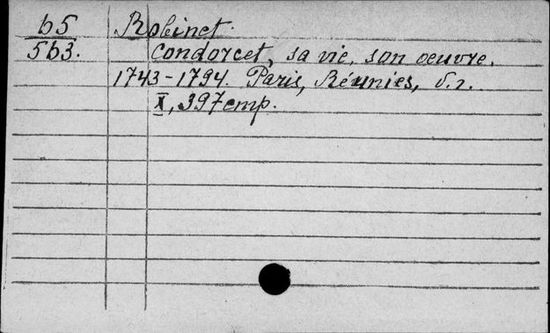 65 Robinet.
563. Condorcet, sa vie, son oeuvre.
1743-1794. Paris, Réunies, б.г.
X, 397 стр.